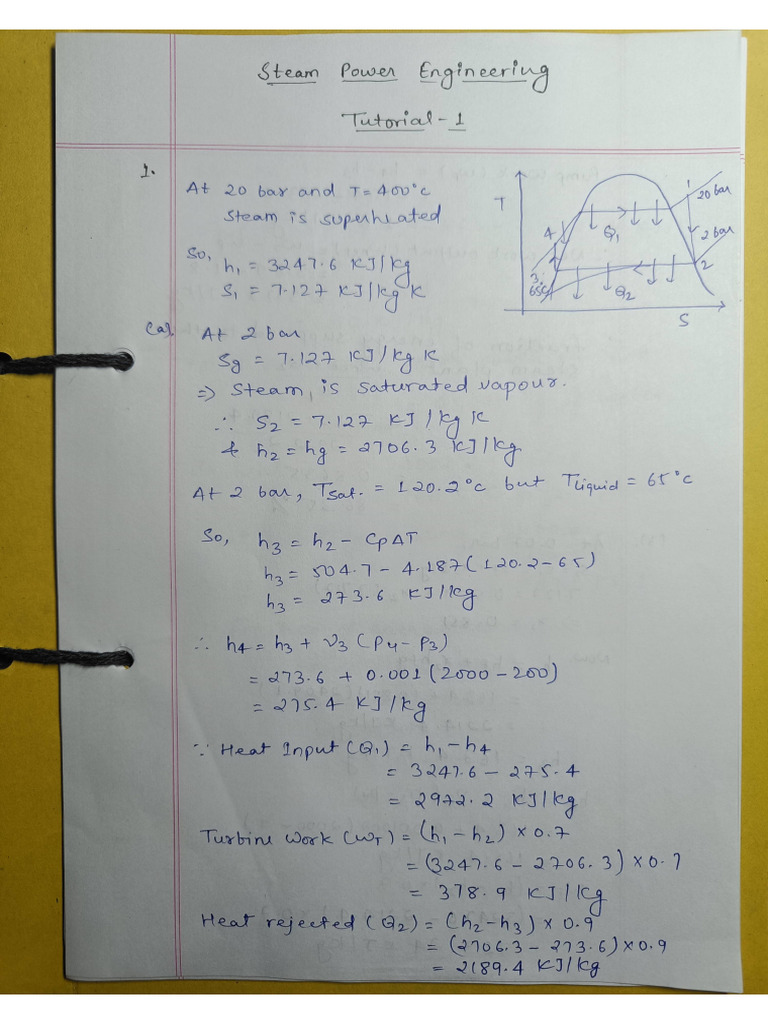 Steam Power Engineering
Tutorial-1
1.
At 20 bar and T=400°C
Steam is superheated
So, h₁ = 3247.6 KJ/kg
S₁ = 7.127 KJ/kg K
T
1
20 bar
2 bar
4
Q₁
2
3
65°C
Q₂
S
(a). At 2 bar
Sg = 7.127 KJ/kg K
=> Steam, is saturated vapour.
∴ S₂ = 7.127 KJ/kg K
& h₂ = hg = 2706.3 KJ/kg
At 2 bar, Tsat. = 120.2°C but Tliquid = 65°C
So, h₃ = h₂ - CpΔT
h₃ = 504.7 - 4.187(120.2-65)
h₃ = 273.6 KJ/kg
∴ h₄ = h₃ + ν₃ (P₄-P₃)
= 273.6 + 0.001(2000-200)
= 275.4 KJ/kg
∵ Heat Input (Q₁) = h₁-h₄
= 3247.6 - 275.4
= 2972.2 KJ/kg
Turbine Work (WT) = (h₁-h₂) × 0.7
= (3247.6 - 2706.3) × 0.7
= 378.9 KJ/kg
Heat rejected (Q₂) = (h₂-h₃) × 0.9
= (2706.3 - 273.6) × 0.9
= 2189.4 KJ/kg